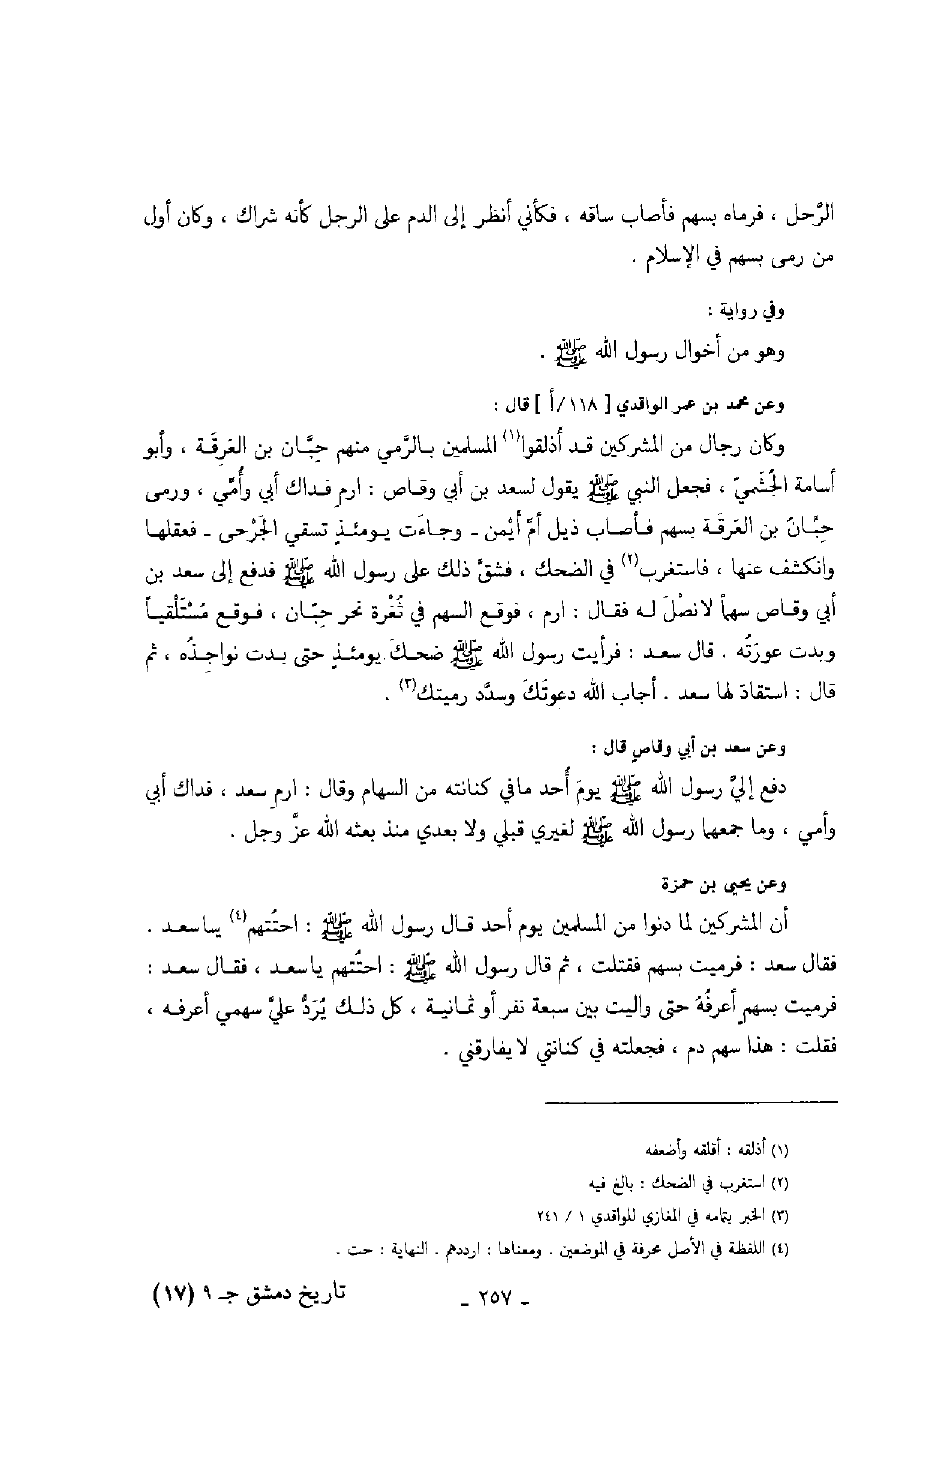 الرَّحل ، فرماه بسهم فأصاب ساقه ، فكأني أنظر إلى الدم على الرجل كأنه شراك ، وكان أول
من رمى بسهم في الإسلام .
وفي رواية :
وهو من أخوال رسول الله ﷺ .
وعن محمد بن عمر الواقدي [ ١١٨/أ ] قال :
وكان رجال من المشركين قد أذلقوا(١) المسلمين بالرَّمي منهم حِبَّان بن العَرِقَة ، وأبو
أسامة الجُشَميّ ، فجعل النبي ﷺ يقول لسعد بن أبي وقاص : ارم فداك أبي وأُمّي ، ورمى
حِبَّانُ بن العَرِقَة بسهم فأصاب ذيل أمّ أيْمن - وجاءَت يومئذٍ تسقي الجَرْحى - فعقلها
وانكشف عنها ، فاستغرب(٢) في الضحك ، فشقَّ ذلك على رسول الله ﷺ فدفع إلى سعد بن
أبي وقاص سهماً لانصْلَ له فقال : ارم ، فوقع السهم في ثُغْرة نحر حِبّان ، فوقع مُسْتَلْقياً
وبدت عورَتُه . قال سعد : فرأيت رسول الله ﷺ ضحكَ يومئذٍ حتى بدت نواجذُه ، ثم
قال : استقادَ لها سعد . أجاب الله دعوتَكَ وسدَّد رميتك(٣) .
وعن سعد بن أبي وقاصٍ قال :
دفع إليَّ رسول الله ﷺ يومَ أُحد مافي كنانته من السهام وقال : ارمِ سعد ، فداك أبي
وأمي ، وما جمعها رسول الله ﷺ لغيري قبلي ولا بعدي منذ بعثه الله عزَّ وجل .
وعن يحيى بن حمزة
أن المشركين لما دنوا من المسلمين يوم أحد قال رسول الله ﷺ : احتُتهم(٤) ياسعد .
فقال سعد : فرميت بسهم فقتلت ، ثم قال رسول الله ﷺ : احتُتهم ياسعد ، فقال سعد :
فرميت بسهمٍ أعرفُهُ حتى واليت بين سبعة نفر أو ثمانية ، كل ذلك يُرَدُّ عليَّ سهمي أعرفه ،
فقلت : هذا سهم دم ، فجعلته في كنانتي لا يفارقني .
(١) أذلقه : أقلقه وأضعفه
(٢) استغرب في الضحك : بالغ فيه
(٣) الخبر بتامه في المغازي للواقدي ١ / ٢٤١
(٤) اللفظة في الأصل محرفة في الموضعين . ومعناها : ارددهم . النهاية : حت .
- ٢٥٧ - تاريخ دمشق جـ ٩ (١٧)